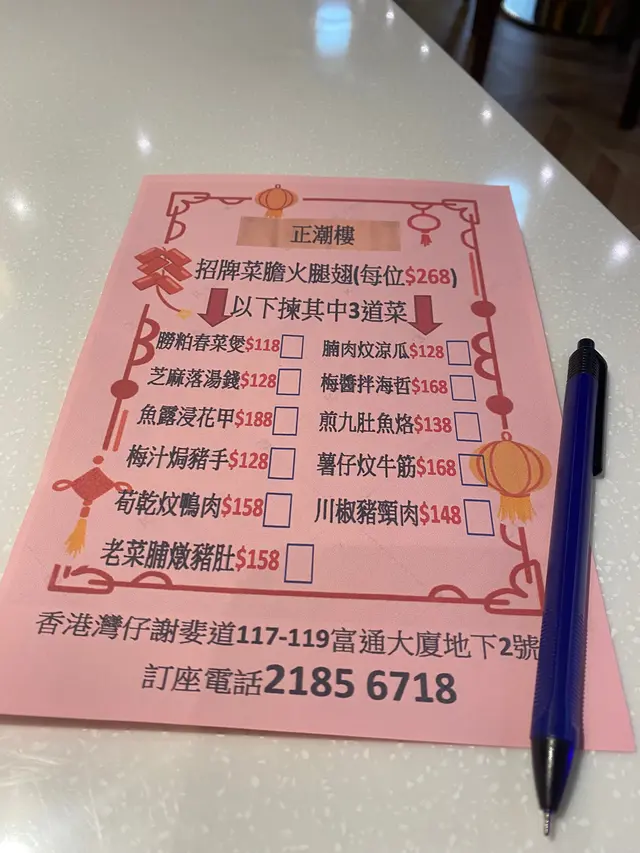 正潮樓
招牌菜膽火腿翅(每位$268)
以下揀其中3道菜
勝粕春菜煲$118
腩肉炆涼瓜$128
芝麻落湯錢$128
梅醬拌海哲$168
魚露浸花甲$188
煎九肚魚烙$138
梅汁焗豬手$128
薯仔炆牛筋$168
荀乾炆鴨肉$158
川椒豬頸肉$148
老菜脯燉豬肚$158
香港灣仔謝斐道117-119富通大廈地下2號
訂座電話2185 6718